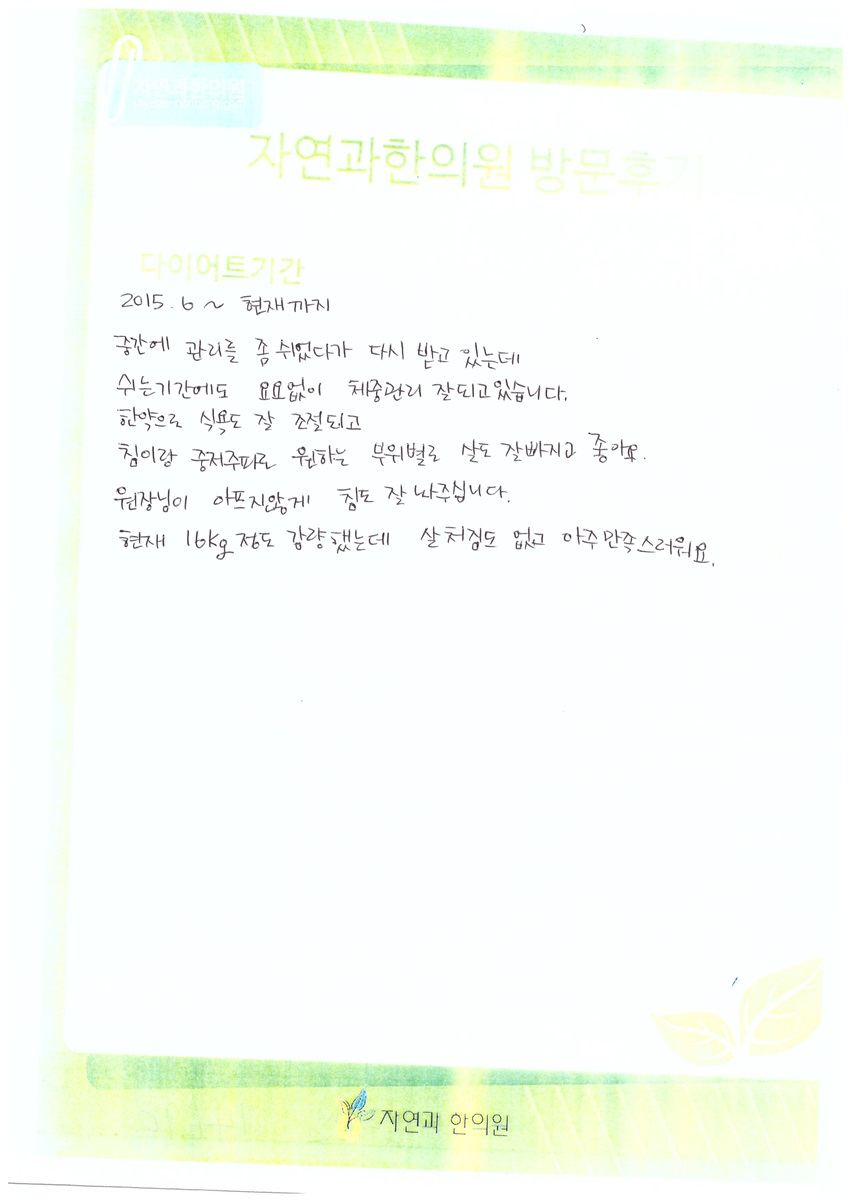 자연과한의원
자연과한의원 방문후기
다이어트기간
2015. 6 ~ 현재까지
중간에 관리를 좀 쉬었다가 다시 받고 있는데
쉬는기간에도 요요없이 체중관리 잘되고있습니다.
한약으로 식욕도 잘 조절되고
침이랑 중저주파로 원하는 부위별로 살도 잘빠지고 좋아요.
원장님이 아프지않게 침도 잘 놔주십니다.
현재 16kg 정도 감량했는데 살처짐도 없고 아주만족스러워요.
자연과 한의원